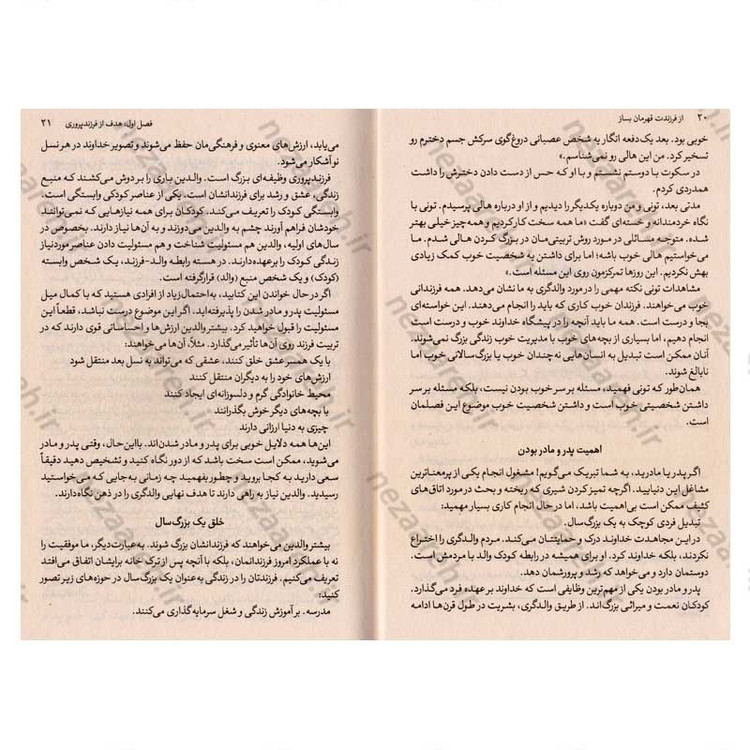 ۲۰ از فرزندت قهرمان بساز
خوبی بود. بعد یک‌دفعه انگار یه شخص عصبانی دروغ‌گوی سرکش جسم دخترم رو
تسخیر کرد. من این هالی رو نمی‌شناسم.»
در سکوت با دوستم نشستم و با او که حس از دست دادن دخترش را داشت
همدردی کردم.
مدتی بعد، تونی و من دوباره یکدیگر را دیدیم و از او درباره هالی پرسیدم. تونی با
نگاه خردمندانه و خسته‌ای گفت «ما همه سخت کار کردیم و همه‌چیز خیلی بهتر
شده. متوجه مسائلی در مورد روش تربیتی‌مان در بزرگ کردن هالی شدم. ما
می‌خواستیم هالی خوب باشه؛ اما برای داشتن یه شخصیت خوب کمک زیادی
بهش نکردیم. این روزها تمرکزمون روی این مسئله است.»
مشاهدات تونی نکته مهمی را در مورد والدگری به ما نشان می‌دهد. همه فرزندانی
خوب می‌خواهند. فرزندان خوب کاری که باید را انجام می‌دهند. این خواسته‌ای
بجا و درست است. همه ما باید آنچه را در پیشگاه خداوند خوب و درست است
انجام دهیم، اما بسیاری از بچه‌های خوب با مدیریت خوب زندگی بزرگ نمی‌شوند.
آنان ممکن است تبدیل به انسان‌هایی نه‌چندان خوب یا بزرگ‌سالانی خوب اما
نابالغ شوند.
همان‌طور که تونی فهمید، مسئله بر سر خوب بودن نیست، بلکه مسئله بر سر
داشتن شخصیتی خوب است و داشتن شخصیت خوب موضوع این فصلمان
است.
اهمیت پدر و مادر بودن
اگر پدر یا مادرید، به شما تبریک می‌گویم! مشغول انجام یکی از پرمعناترین
مشاغل این دنیایید. اگرچه تمیز کردن شیری که ریخته و بحث در مورد اتاق‌های
کثیف ممکن است بی‌اهمیت باشد، اما در حال انجام کاری بسیار مهمید:
تبدیل فردی کوچک به یک بزرگ‌سال.
در این مجاهدت خداوند درک و حمایتتان می‌کند. مردم والدگری را اختراع
نکردند، بلکه خداوند کرد. او برای همیشه در رابطه کودک والد با مردمش است.
دوستمان دارد و می‌خواهد که رشد و پرورشمان دهد.
پدر و مادر بودن یکی از مهم‌ترین وظایفی است که خداوند بر عهده فرد می‌گذارد.
کودکان نعمت و میراثی بزرگ‌اند. از طریق والدگری، بشریت در طول قرن‌ها ادامه
فصل اول: هدف از فرزندپروری ۲۱
می‌یابد، ارزش‌های معنوی و فرهنگی‌مان حفظ می‌شوند و تصویر خداوند در هر نسل
نو آشکار می‌شود.
فرزندپروری وظیفه‌ای بزرگ است. والدین باری را بر دوش می‌کشند که منبع
زندگی، عشق و رشد برای فرزندانشان است. یکی از عناصر کودکی وابستگی است.
وابستگی کودک را تعریف می‌کند. کودکان برای همه نیازهایی که نمی‌توانند
خودشان فراهم آورند چشم به والدین می‌دوزند و به آن‌ها نیاز دارند. بخصوص در
سال‌های اولیه، والدین هم مسئولیت شناخت و هم مسئولیت دادن عناصر موردنیاز
زندگی کودک را برعهده دارند. در هسته رابطه والد-فرزند، یک شخص وابسته
(کودک) و یک شخص منبع (والد) قرار گرفته است.
اگر در حال خواندن این کتابید، به‌احتمال زیاد از افرادی هستید که با کمال میل
مسئولیت پدر و مادر شدن را پذیرفته‌اید. اگر این موضوع درست نباشد، قطعاً این
مسئولیت را قبول خواهید کرد. بیشتر والدین ارزش‌ها و احساساتی قوی دارند که در
تربیت فرزند روی آن‌ها تأثیر می‌گذارد. مثلاً، آن‌ها می‌خواهند:
با یک همسر عشق خلق کنند، عشقی که می‌تواند به نسل بعد منتقل شود
ارزش‌های خود را به دیگران منتقل کنند
محیط خانوادگی گرم و دلسوزانه‌ای ایجاد کنند
با بچه‌های دیگر خوش بگذرانند
چیزی به دنیا ارزانی دارند
این‌ها همه دلایل خوبی برای پدر و مادر شدن‌اند. بااین‌حال، وقتی پدر و مادر
می‌شوید، ممکن است سخت باشد که از دور نگاه کنید و تشخیص دهید دقیقاً
سعی دارید به کجا بروید و چطور بفهمید چه زمانی به‌جایی که می‌خواستید
رسیدید. والدین نیاز به راهی دارند تا هدف نهایی والدگری را در ذهن نگاه دارند.
خلق یک بزرگ سال
بیشتر والدین می‌خواهند که فرزندانشان بزرگ شوند. به‌عبارت‌دیگر، ما موفقیت را
نه با عملکرد امروز فرزندانمان، بلکه با آنچه پس از ترک خانه برایشان اتفاق می‌افتد
تعریف می‌کنیم. فرزندتان را در زندگی به‌عنوان یک بزرگ سال در حوزه‌های زیر تصور
کنید:
مدرسه. بر آموزش زندگی و شغل سرمایه‌گذاری می‌کنند.